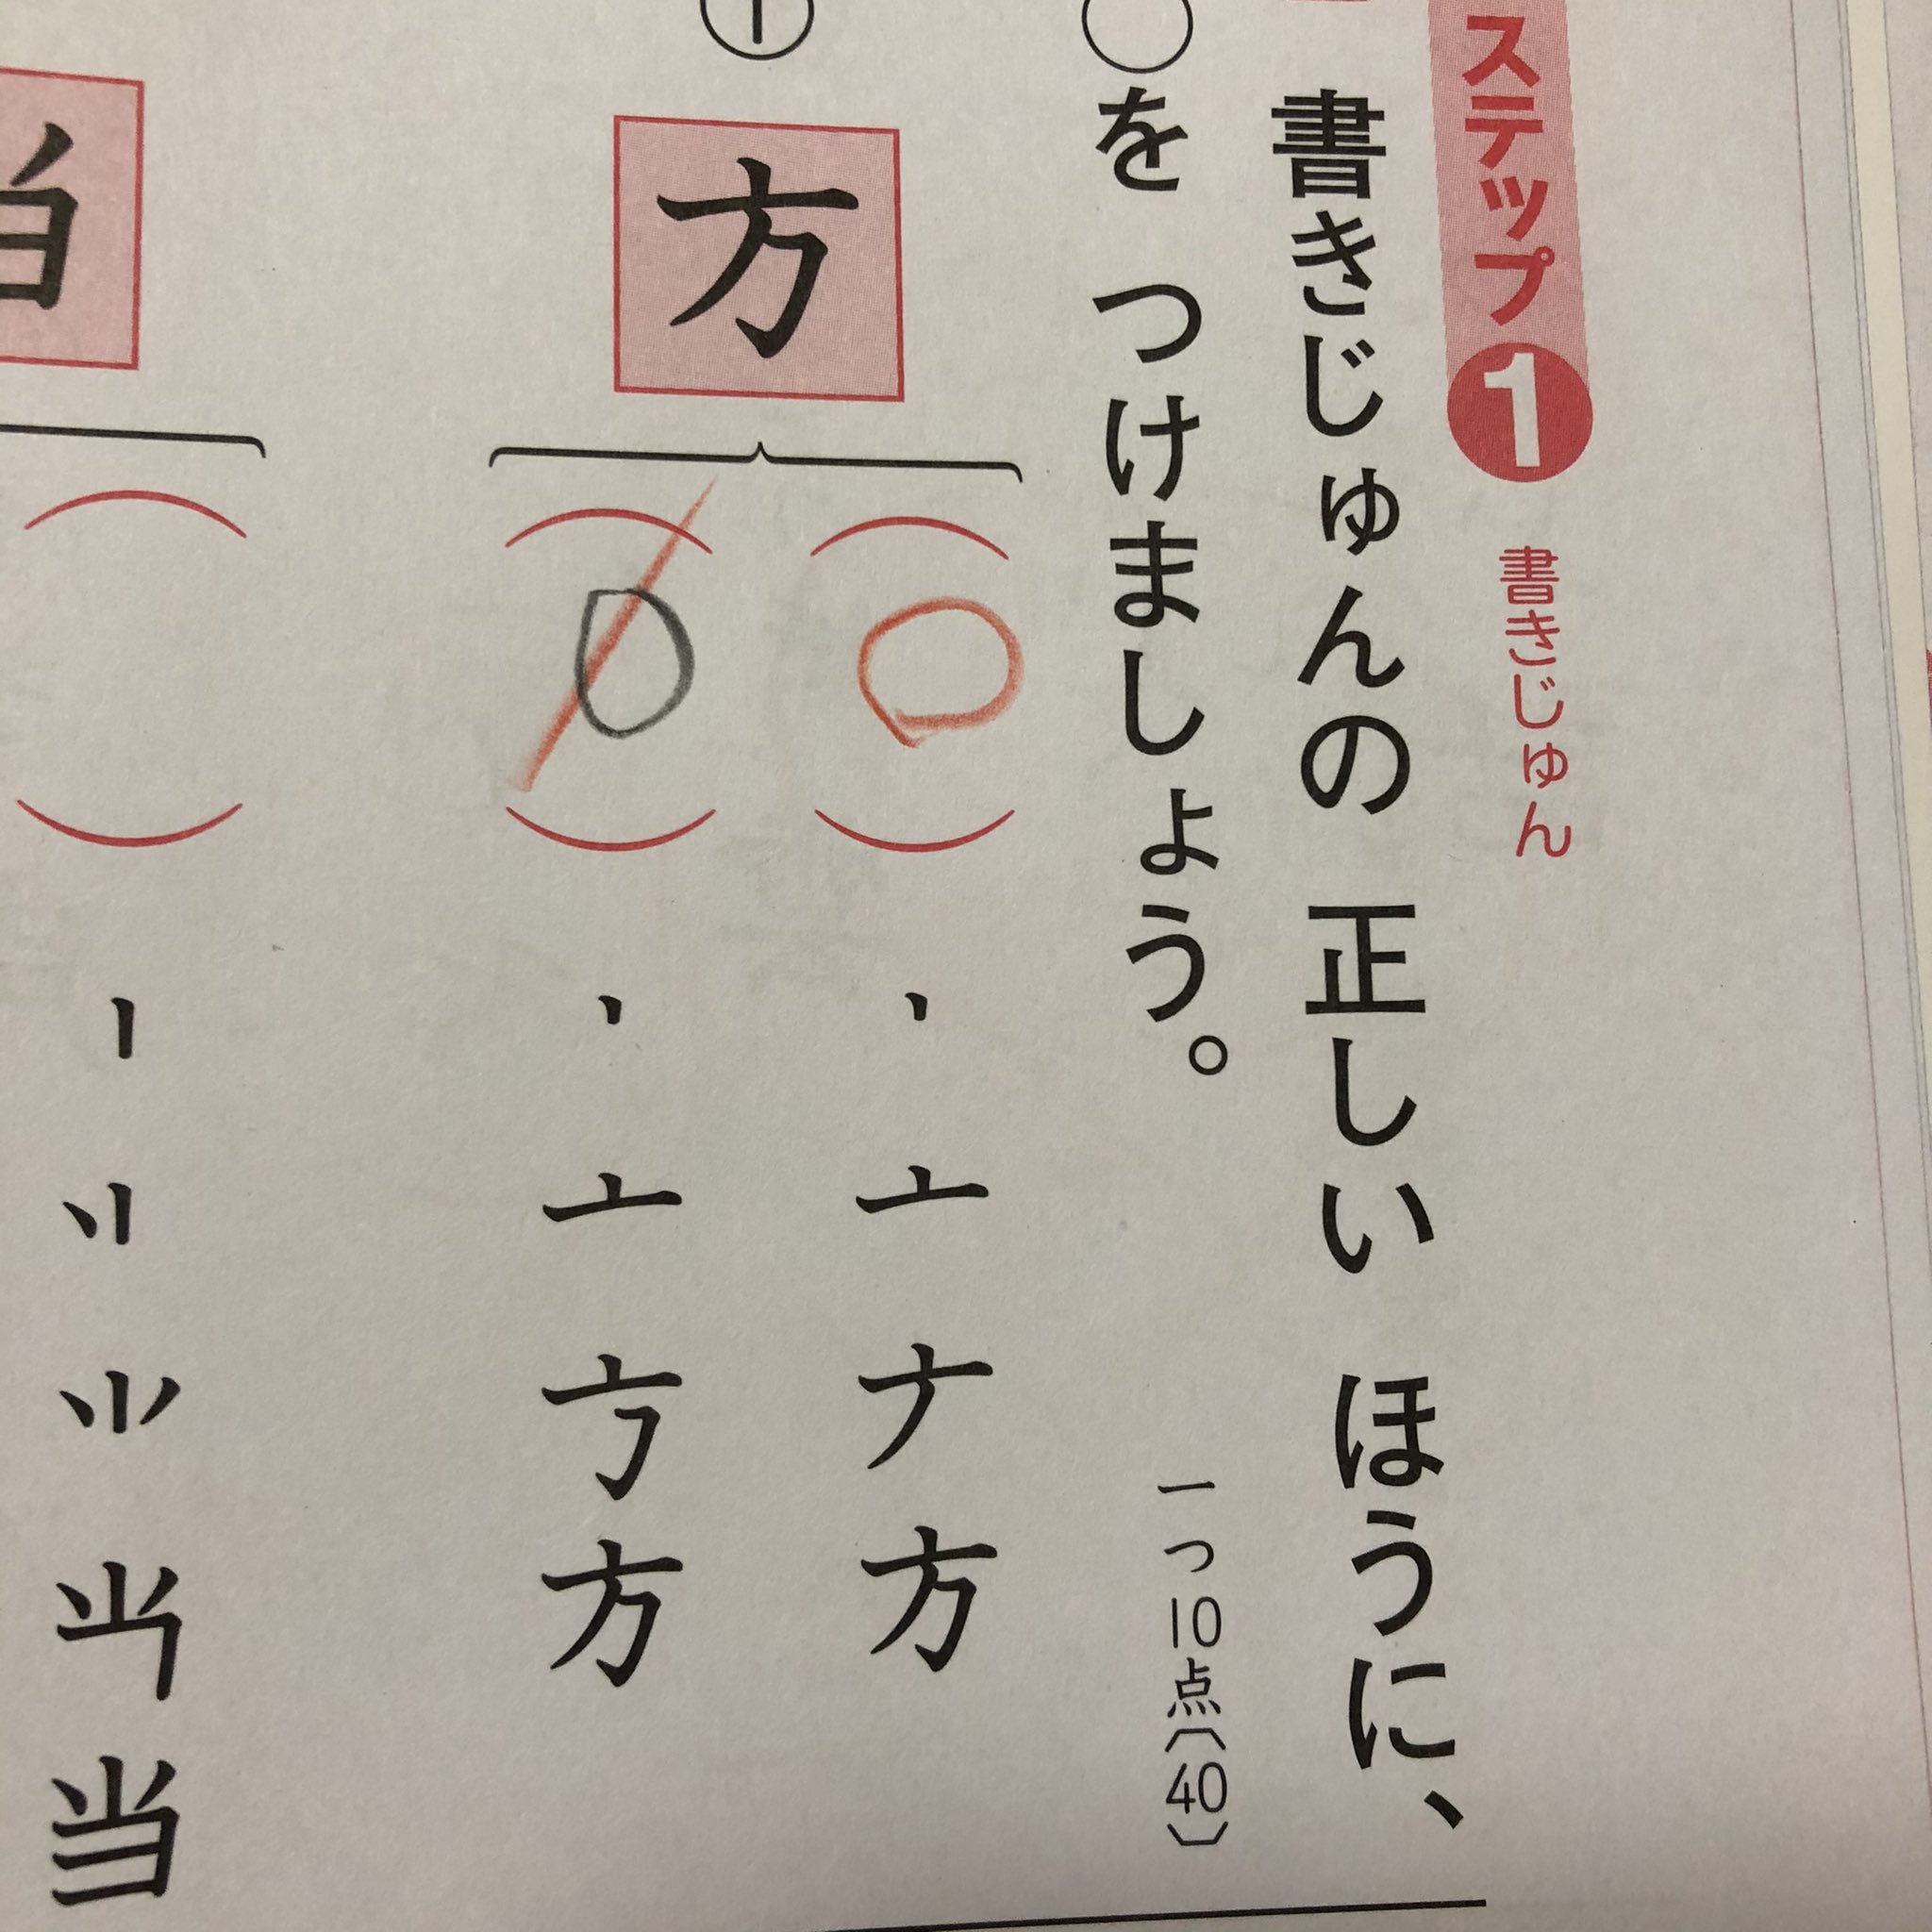 ステップ1 書きじゅん
書きじゅんの 正しい ほうに、
○を つけましょう。 一つ10点〔40〕
① 方
○ 丶 亠 ナ 方
○ 丶 亠 方
当